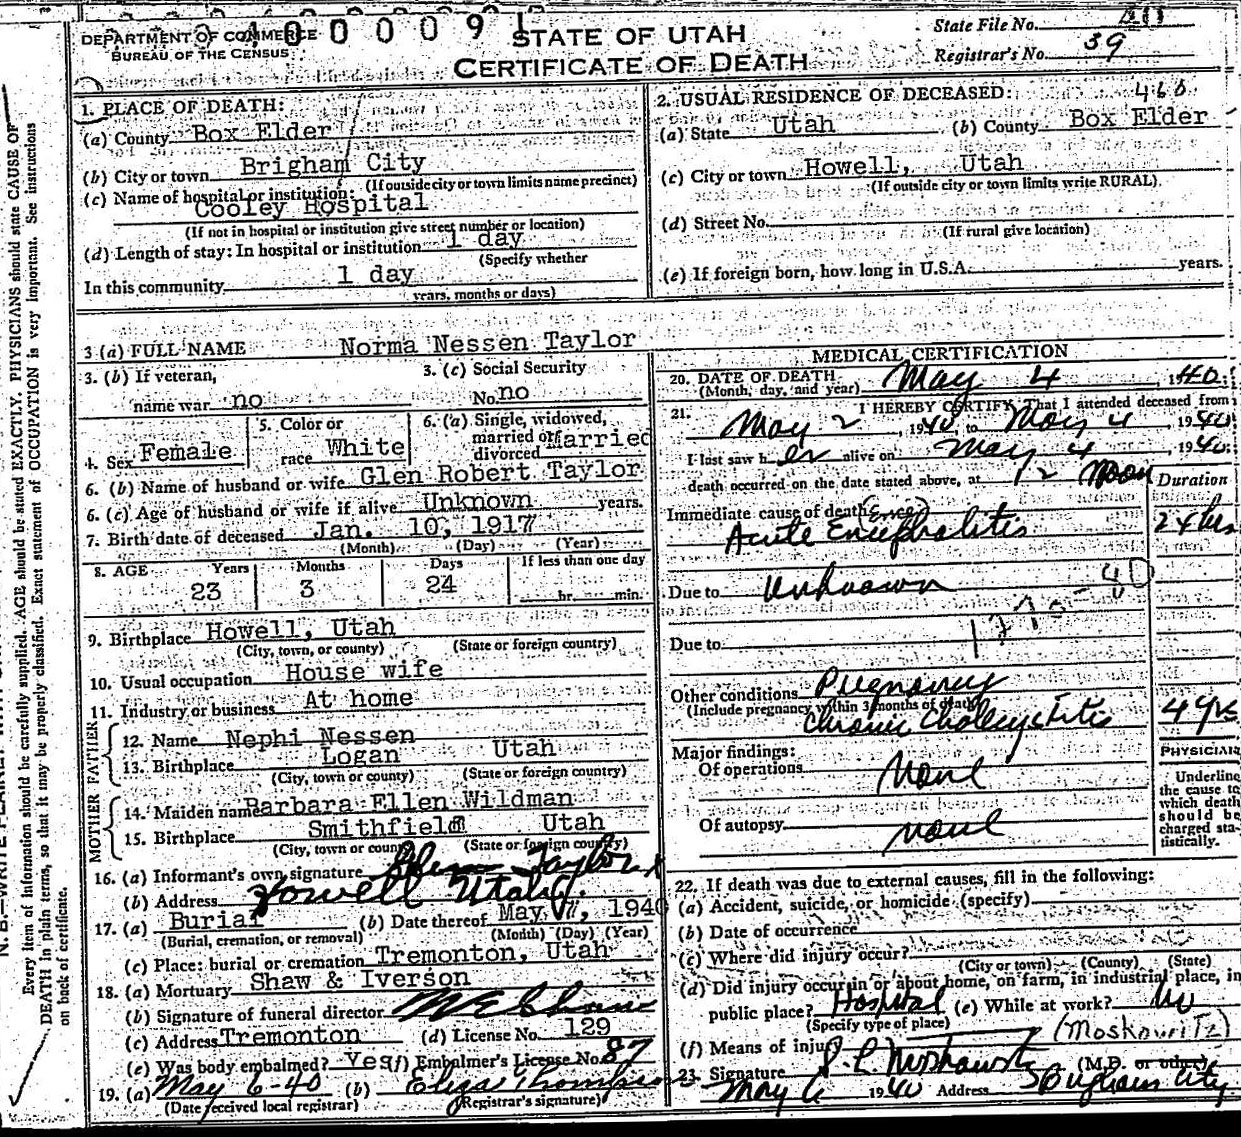 4000091
DEPARTMENT OF COMMERCE
BUREAU OF THE CENSUS
STATE OF UTAH
CERTIFICATE OF DEATH
State File No.
Registrar's No. 39
1. PLACE OF DEATH:
(a) County Box Elder
(b) City or town Brigham City
(If outside city or town limits name precinct)
(c) Name of hospital or institution:
Cooley Hospital
(If not in hospital or institution give street number or location)
(d) Length of stay: In hospital or institution 1 day
(Specify whether
In this community 1 day
years, months or days)
2. USUAL RESIDENCE OF DECEASED: 460
(a) State Utah (b) County Box Elder
(c) City or town Howell, Utah
(If outside city or town limits write RURAL)
(d) Street No.
(If rural give location)
(e) If foreign born, how long in U.S.A. years.
3 (a) FULL NAME Norma Nessen Taylor
3. (b) If veteran,
name war no
3. (c) Social Security
No. no
4. Sex Female
5. Color or
race White
6. (a) Single, widowed,
married or
divorced Married
6. (b) Name of husband or wife Glen Robert Taylor
6. (c) Age of husband or wife if alive Unknown years.
7. Birth date of deceased Jan. 10, 1917
(Month) (Day) (Year)
8. AGE Years Months Days If less than one day
23 3 24 hr. min.
9. Birthplace Howell, Utah
(City, town, or county) (State or foreign country)
10. Usual occupation House wife
11. Industry or business At home
FATHER
12. Name Nephi Nessen
13. Birthplace Logan Utah
(City, town or county) (State or foreign country)
MOTHER
14. Maiden name Barbara Ellen Wildman
15. Birthplace Smithfield Utah
(City, town or county) (State or foreign country)
16. (a) Informant's own signature Glen Taylor
(b) Address Howell Utah
17. (a) Burial (b) Date thereof May 7, 1940
(Burial, cremation, or removal) (Month) (Day) (Year)
(c) Place: burial or cremation Tremonton, Utah
18. (a) Mortuary Shaw & Iverson
(b) Signature of funeral director
(c) Address Tremonton (d) License No. 129
(e) Was body embalmed? Yes (f) Embalmer's License No. 87
19. (a) May 6-40 (b) Eliza Thompson
(Date received local registrar) (Registrar's signature)
MEDICAL CERTIFICATION
20. DATE OF DEATH May 4 1940
(Month, day, and year)
21. I HEREBY CERTIFY, That I attended deceased from
May 2, 1940, to May 4, 1940
I last saw h er alive on May 4 1940
death occurred on the date stated above, at 12 Noon
Duration
Immediate cause of death
Acute Encephalitis 24 hrs
Due to Unknown
Due to
Other conditions Pregnancy
(Include pregnancy within 3 months of death)
Chronic Cholecystitis 4 yrs
Major findings:
Of operations None
Of autopsy None
PHYSICIAN
Underline
the cause to
which death
should be
charged sta-
tistically.
22. If death was due to external causes, fill in the following:
(a) Accident, suicide, or homicide (specify)
(b) Date of occurrence
(c) Where did injury occur?
(City or town) (County) (State)
(d) Did injury occur in or about home, on farm, in industrial place, in
public place? Hospital (e) While at work? No
(Specify type of place)
(f) Means of injury (Moskowitz)
23. Signature (M.D. or other)
May 6 1940 Address Brigham City
Every item of information should be carefully supplied. AGE should be stated EXACTLY. PHYSICIANS should state CAUSE OF
DEATH in plain terms, so that it may be properly classified. Exact statement of OCCUPATION is very important. See instructions
on back of certificate.